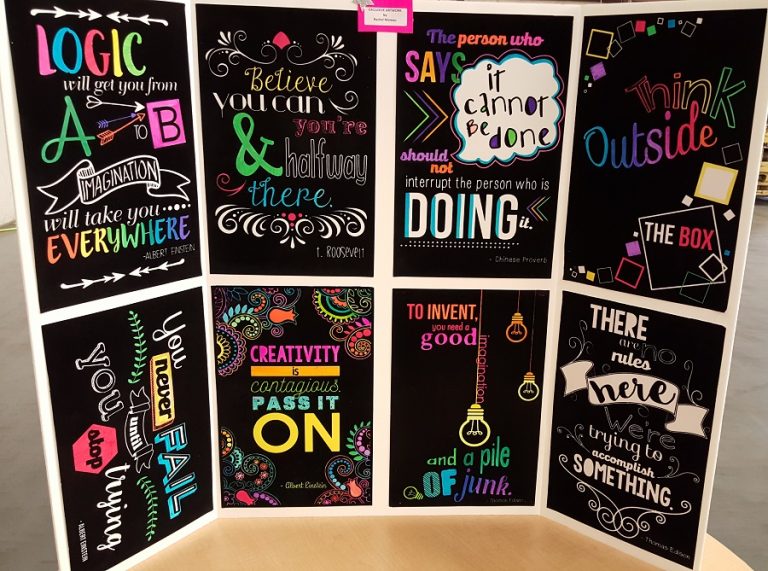 EXCLUSIVE ARTWORK
By
LOGIC
will get you from
A TO B
IMAGINATION
will take you
EVERYWHERE
-ALBERT EINSTEIN
Believe
you can
you're
& halfway
there.
T. Roosevelt
The person who
SAYS
it
cannot
Be
done
should
not
interrupt the person who is
DOING it.
- Chinese Proverb
Think
Outside
THE BOX
you never
FAIL
until
you
stop
trying
- ALBERT EINSTEIN
CREATIVITY
is
contagious.
PASS IT
ON
- Albert Einstein
TO INVENT,
you need a
good
imagination
and a pile
OF junk.
- Thomas Edison
THERE
are no
rules
here
We're
trying to
accomplish
SOMETHING.
- Thomas Edison